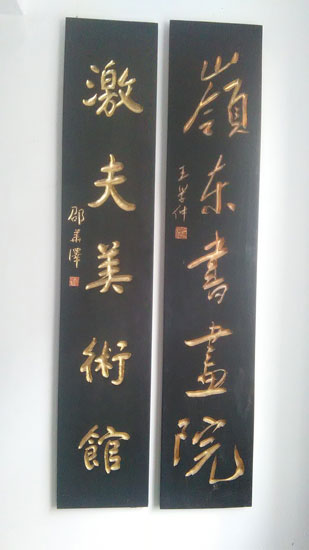 嶺东書畫院
王学仲
激夫美術館
邵华澤